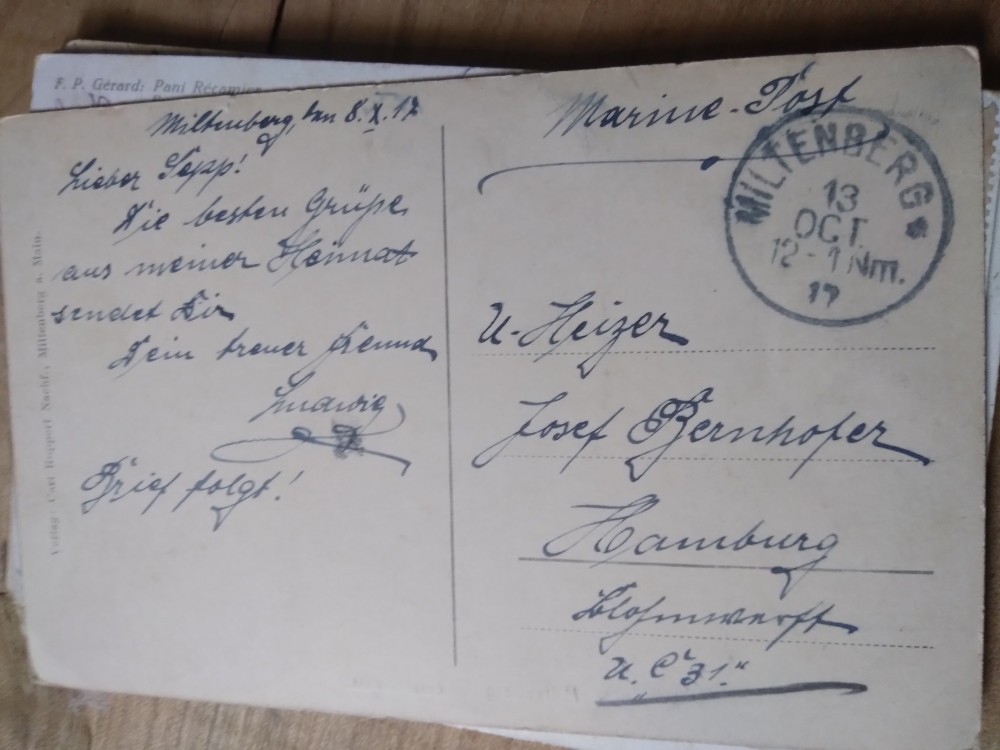 F. P. Gérard: Pani Récamier
Miltenberg, den 8. X. 17
Lieber Sepp!
Die besten Grüße
aus meiner Heimat
sendet Dir
Dein treuer Freund
Ludwig
Brief folgt!
Verlag: Carl Ruppert Nachf., Miltenberg a. Main.
Marine-Post
MILTENBERG *
13
OCT.
12-1 Nm.
17
U-Heizer
Josef Bernhofer
Hamburg
Blohmwerft
U. „C 31."